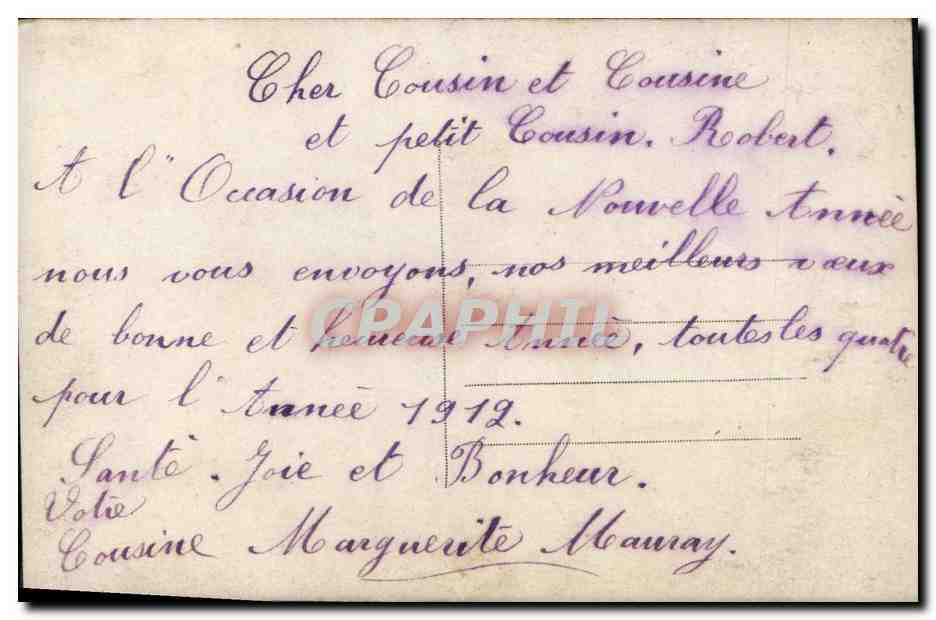 Cher Cousin et Cousine
et petit Cousin. Robert.
A l'Occasion de la Nouvelle Année
nous vous envoyons, nos meilleurs vœux
de bonne et heureuse Année, toutes les quatre
pour l'Année 1912.
Santé. Joie et Bonheur.
Votre
Cousine Marguerite Mauray.
CPAPHIL